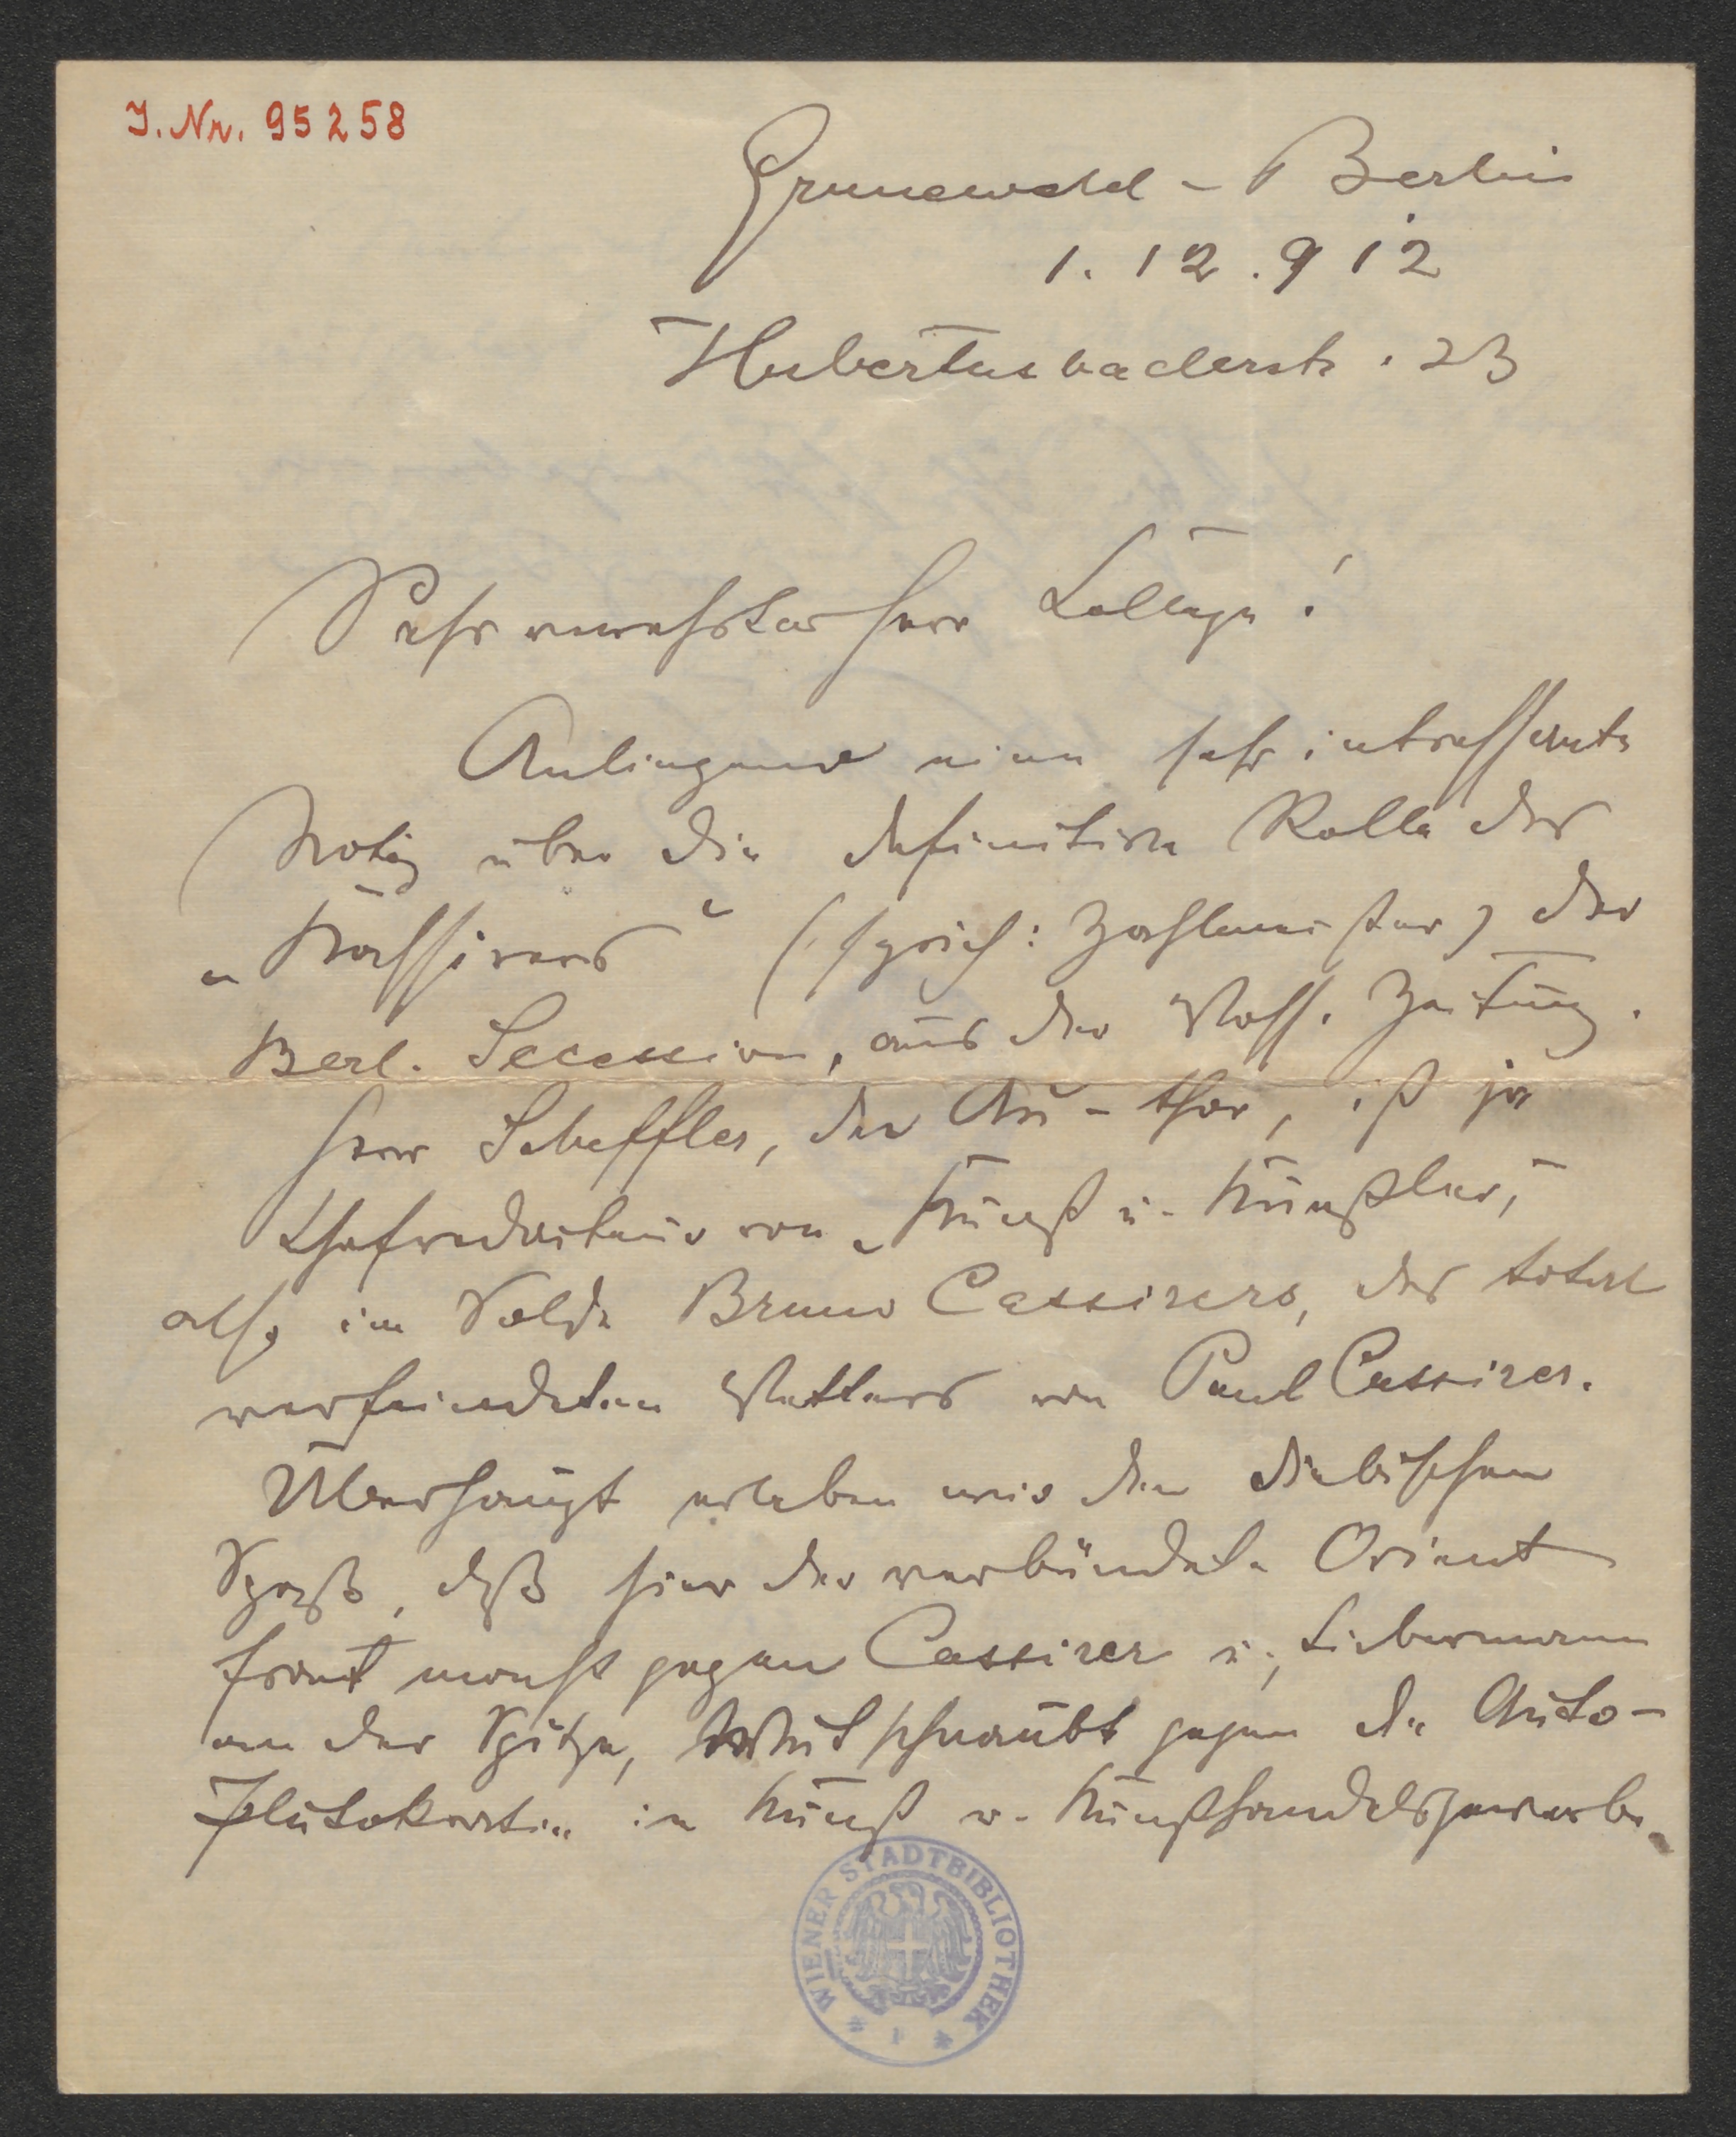 I. Nr. 95258
Grunewald - Berlin
1. 12. 912
Hubertusbaderstr. 23
Sehr verehrter Herr College!
Anliegend eine sehr intressante
Notiz über die definitive Rolle des
„Kassirers“ (sprich: Zahlmeister) der
Berl. Secession, aus der Voss. Zeitung.
Herr Scheffler, der Au-thor, ist ja
Chefredacteur von „Kunst u. Künstler,“
also im Solde Bruno Cassirers, des total
verfeindeten Vetters von Paul Cassirer.
Überhaupt erleben wir den diebischen
Spaß, daß hier der verbündete Orient
front macht gegen Cassirer u., Liebermann
an der Spitze, Wut schnaubt gegen die Auto-
Plutokratie in Kunst u. Kunsthandelsgewerbe.
WIENER STADTBIBLIOTHEK